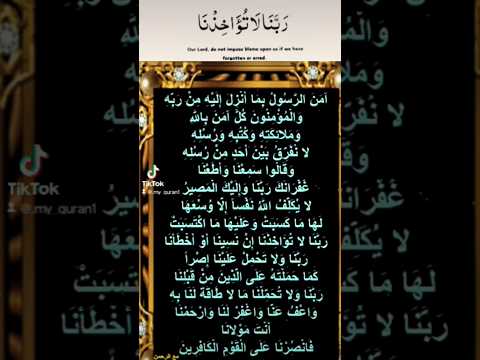 رَبَّنَا لَا تُؤَاخِذْنَا
Our Lord, do not impose blame upon us if we have
forgotten or erred.
آمَنَ الرَّسُولُ بِمَا أُنْزِلَ إِلَيْهِ مِنْ رَبِّهِ
وَالْمُؤْمِنُونَ كُلٌّ آمَنَ بِاللَّهِ
وَمَلَائِكَتِهِ وَكُتُبِهِ وَرُسُلِهِ
لَا نُفَرِّقُ بَيْنَ أَحَدٍ مِنْ رُسُلِهِ
وَقَالُوا سَمِعْنَا وَأَطَعْنَا
غُفْرَانَكَ رَبَّنَا وَإِلَيْكَ الْمَصِيرُ
لَا يُكَلِّفُ اللَّهُ نَفْسًا إِلَّا وُسْعَهَا
لَهَا مَا كَسَبَتْ وَعَلَيْهَا مَا اكْتَسَبَتْ
رَبَّنَا لَا تُؤَاخِذْنَا إِنْ نَسِينَا أَوْ أَخْطَأْنَا
رَبَّنَا وَلَا تَحْمِلْ عَلَيْنَا إِصْرًا
كَمَا حَمَلْتَهُ عَلَى الَّذِينَ مِنْ قَبْلِنَا
رَبَّنَا وَلَا تُحَمِّلْنَا مَا لَا طَاقَةَ لَنَا بِهِ
وَاعْفُ عَنَّا وَاغْفِرْ لَنَا وَارْحَمْنَا
أَنْتَ مَوْلَانَا
فَانْصُرْنَا عَلَى الْقَوْمِ الْكَافِرِينَ
TikTok
@my_quran1